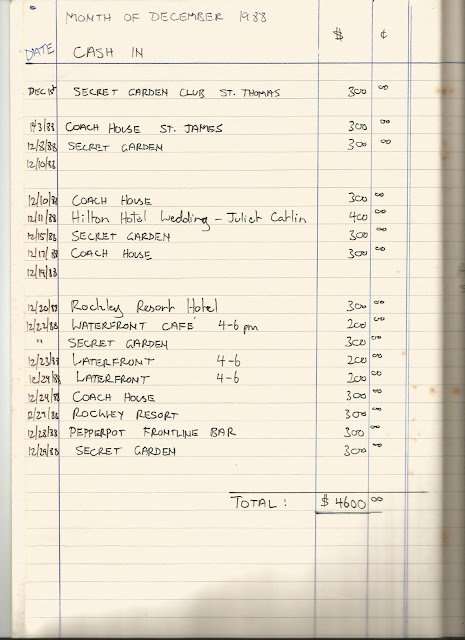 MONTH OF DECEMBER 1988
$ ¢
DATE CASH IN
SECRET GARDEN CLUB ST. THOMAS 300 00
COACH HOUSE ST. JAMES 300 00
12/8/88 SECRET GARDEN 300 00
12/10/88
12/10/88 COACH HOUSE 300 00
12/11/88 Hilton Hotel Wedding - Juliet Catlin 400 00
12/15/88 SECRET GARDEN 300 00
12/17/88 COACH HOUSE 300 00
12/19/88
12/20/88 Rockley Resort Hotel 300 00
12/22/88 WATERFRONT CAFE 4-6 pm 200 00
" SECRET GARDEN 300 00
12/23/88 LATERFRONT 4-6 200 00
12/24/88 LATERFRONT 4-6 200 00
12/24/88 COACH HOUSE 300 00
12/27/88 ROCKLEY RESORT 300 00
12/28/88 PEPPERPOT FRONTLINE BAR 300 00
12/29/88 SECRET GARDEN 300 00
TOTAL: $ 4600 00